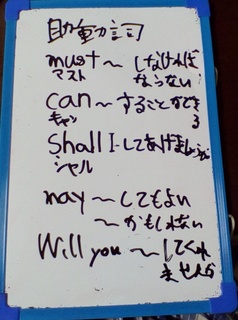 助動詞
must～ しなければ
マスト ならない
can～することができ
キャン る
Shall I～してあげましょうか
シャル
may～してもよい
～かもしれない
Will you～してくれ
ませんか